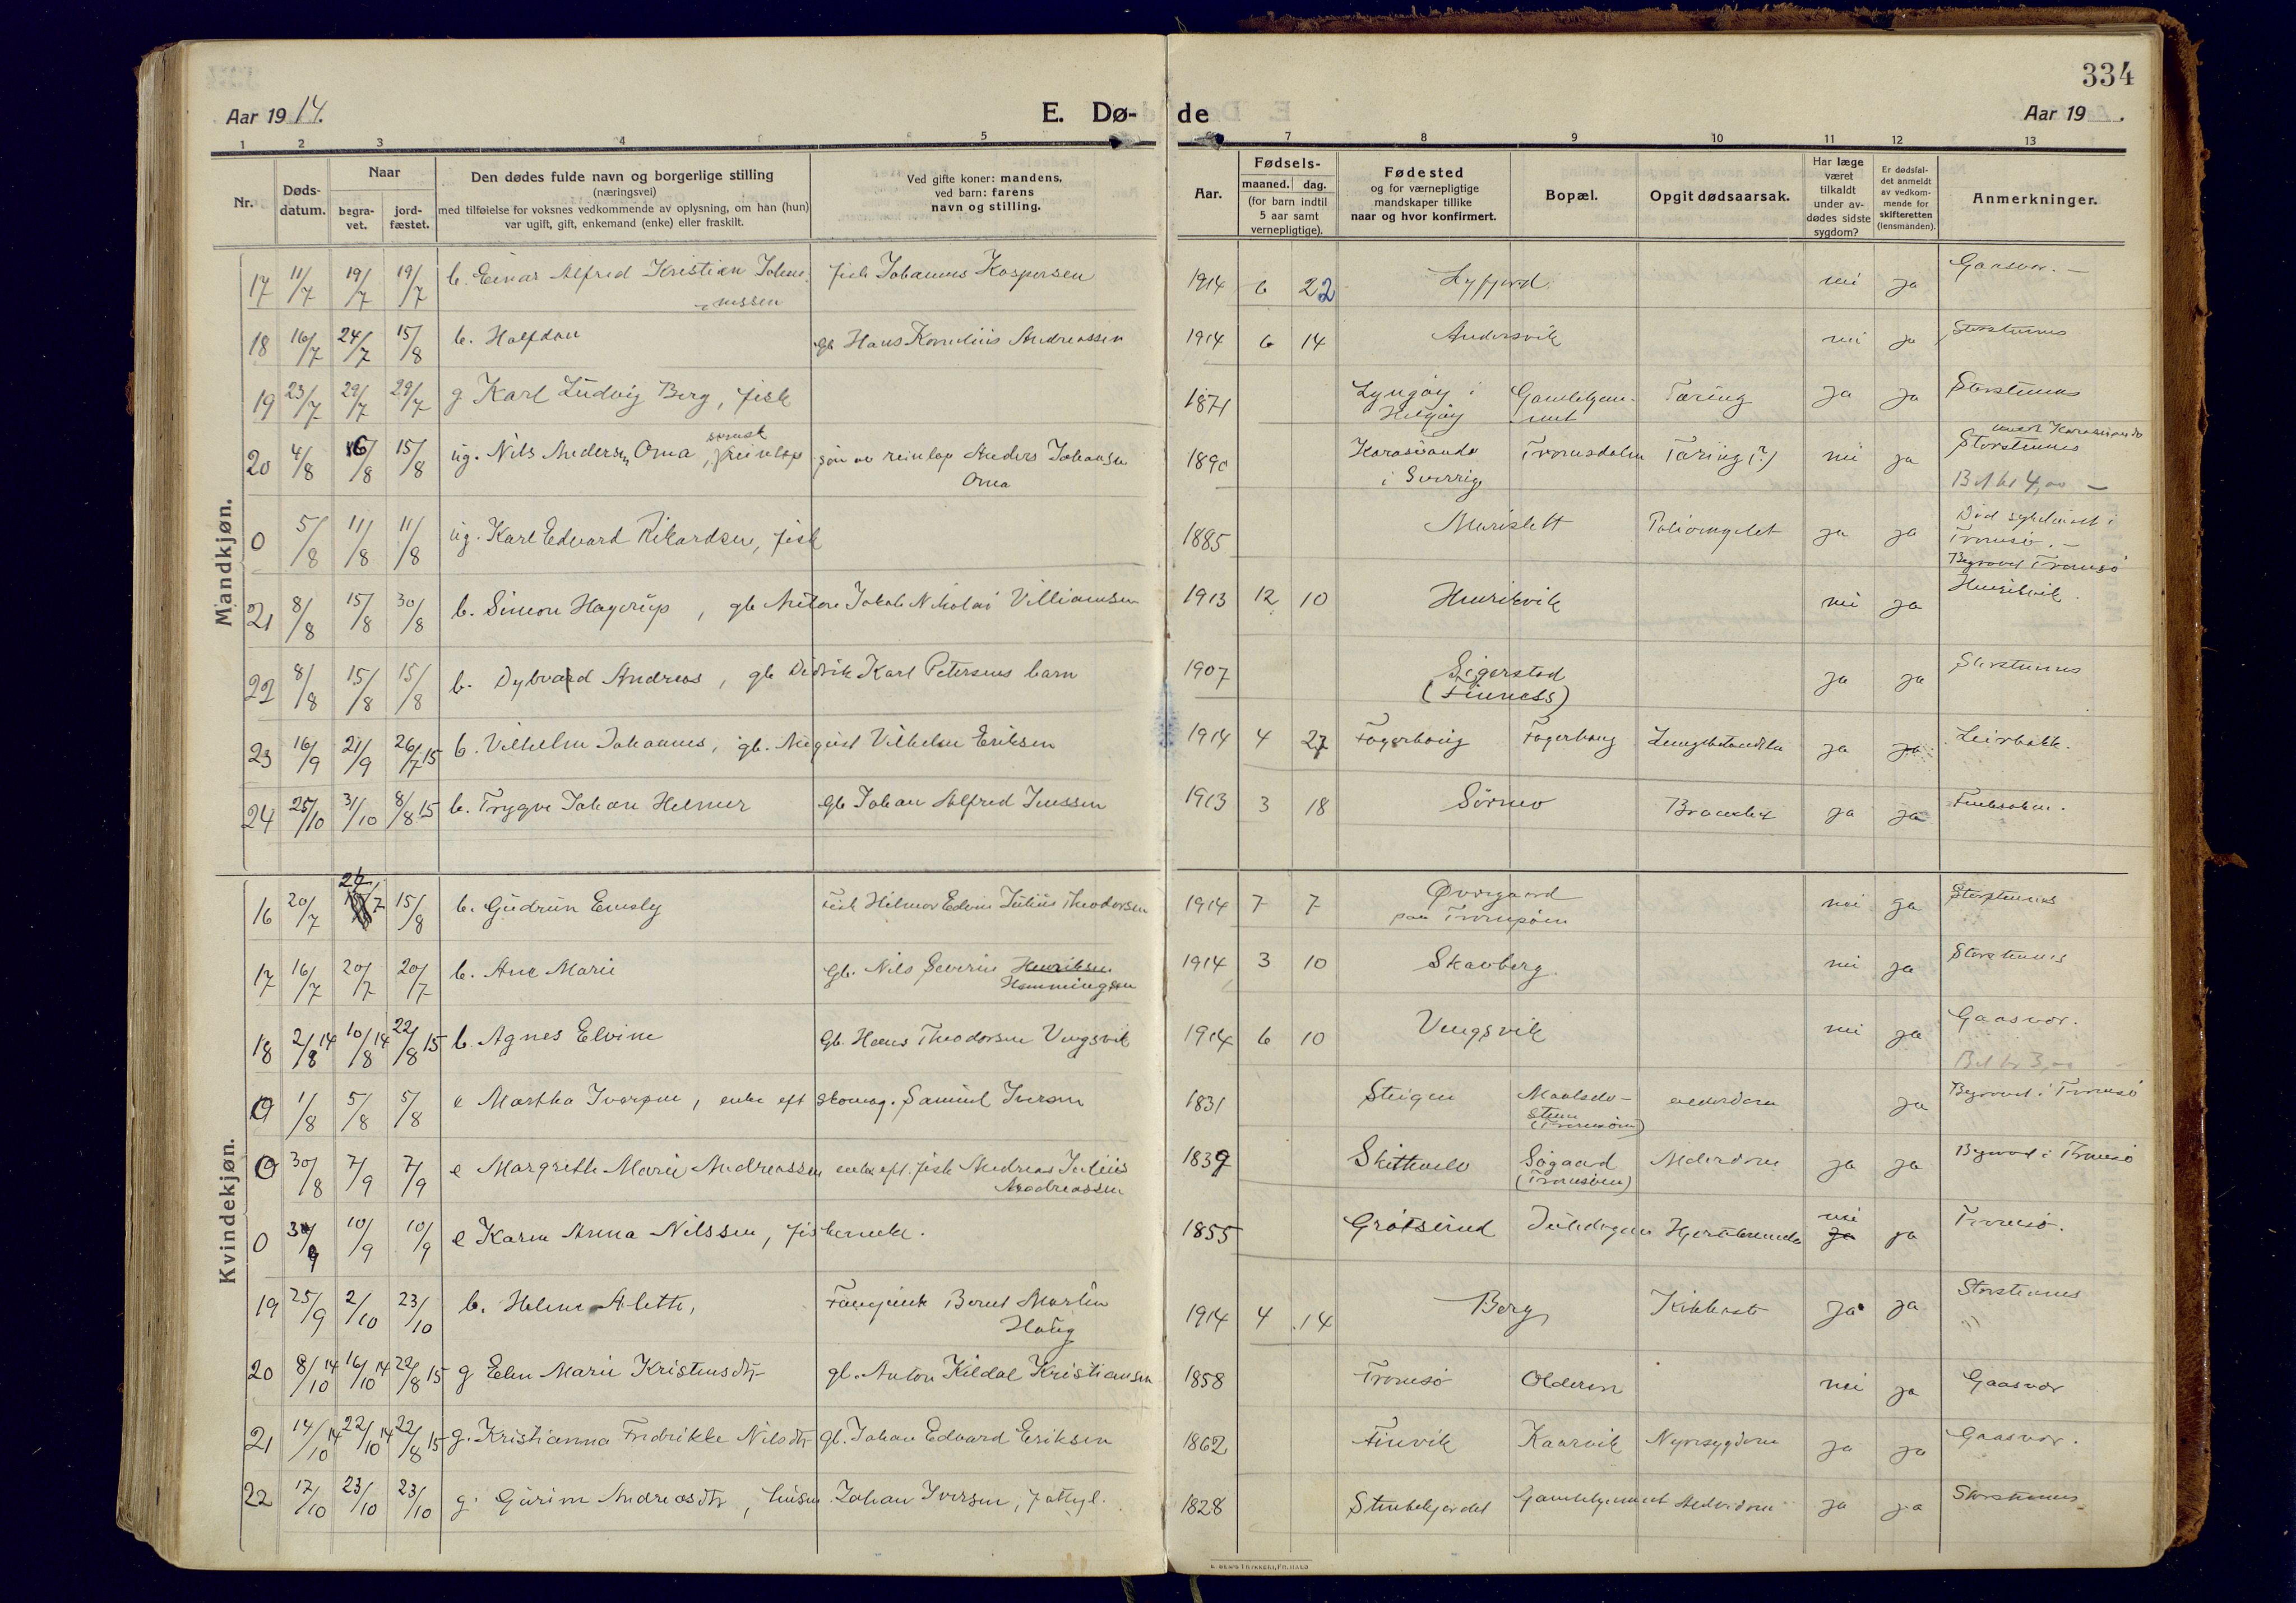 334
Aar 1914.
E. Dø-
de
Aar 19 .
1 2 3 4 5 6 7 8 9 10 11 12 13
Nr.
Døds-
datum.
Naar
begra-
vet.
jord-
fæstet.
Den dødes fulde navn og borgerlige stilling
(næringsvei)
med tilføielse for voksnes vedkommende av oplysning, om han (hun)
var ugift, gift, enkemand (enke) eller fraskilt.
Ved gifte koner: mandens,
ved barn: farens
navn og stilling.
Aar.
Fødsels-
maaned. dag.
(for barn indtil
5 aar samt
vernepligtige).
Fødested
og for værnepligtige
mandskaper tillike
naar og hvor konfirmert.
Bopæl.
Opgit dødsaarsak.
Har læge
været
tilkaldt
under av-
dødes sidste
sygdom?
Er dødsfal-
det anmeldt
av vedkom-
mende for
skifteretten
(lensmanden).
Anmerkninger.
Mandkjøn.
17 11/7 19/7 19/7 b. Einar Alfred Kristian Johan-
nessen fisk Johannes Kaspersen 1914 6 22 Lyfjord nei ja Gaasvær. —
18 16/7 24/7 15/8 b. Halfdan gb Hans Kornelius Andreassen 1914 6 14 Andersvik nei ja Storstennes
19 23/7 29/7 29/7 g Karl Ludvig Berg, fisk 1871 Lyngøy i
Helgøy Gammelgam-
met Tæring ja ja Storstennes
20 4/8 16/8 15/8 ug. Nils Andersen Oma, svensk reinlap søn av reinlap Anders Johansen
Oma 1890 Karasuando
i Sverrig Tromsdalen Tæring (?) nei ja Storstennes
Bet kr 4,00 —
0 5/8 11/8 11/8 ug. Karl Edvard Rikardsen, fisk 1885 Marislett ja ja Død sykehuset i
Tromsø. —
Begravet Tromsø
21 8/8 15/8 30/8 b. Simon Hagerup, gb Anton Jakob Nikolai Villiamsen 1913 12 10 Henrikvik nei ja Henrikvik.
22 8/8 15/8 15/8 b. Dybvard Andreas, gb Didrik Karl Petersens barn 1907 Sigerstad
(Finnæss) ja ja Storstennes
23 16/9 21/9 26/7 15 b. Vilhelm Johannes, gb. August Vilhelm Eriksen 1914 4 27 Fagerhaug Fagerhaug ja ja Leirbakk.
24 25/10 31/10 8/8 15 b. Trygve Johan Helmer gb Johan Alfred Jenssen 1913 3 18 Sørmo ja ja
Kvindekjøn.
16 20/7 26/7 15/8 b. Gudrun Emsly fisk Hilmar Edvin Julius Theodorsen 1914 7 7 Øvregaard
paa Tromsøen nei ja Storstennes
17 16/7 20/7 20/7 b. Ane Marie gb. Nils Severin Henriksen
Hemmingsen 1914 3 10 Skavberg nei ja Storstennes
18 2/8 14 10/8 14 22/8 15 b. Agnes Elvine gb. Hans Theodorsen Vengsvik 1914 6 10 Vengsvik nei ja Gaasvær.
Bet kr 3,00
0 1/8 5/8 5/8 e Martha Ivarsen, enke eft skomag. Samuel Iversen 1831 Steigen (Tromsøen) alderdom ja Begravet i Tromsø
0 30/8 7/9 7/9 e Margrethe Marie Andreassen enke eft. fisk Andreas Julius
Andreassen 1839 Skittenelv Søgaard
(Tromsøen) Alderdom ja ja Begravet i Tromsø
0 30/9 10/9 10/9 e Karen Anna Nilssen, fiskerenke. 1855 Grøtsund nei
ja ja Tromsø.
19 25/9 2/10 23/10 b. Helene Alette, Bernt Martin
Haug 1914 4 14 Berg Kikhoste ja ja Storstennes
"
20 8/10 14 16/10 14 22/8 15 g Elen Marie Kristensdtr gb. Anton Kildal Kristiansen 1858 Tromsø Olderen nei ja Gaasvær
21 14/10 14 22/10 14 22/8 15 g. Kristianna Fredrikke Nilsdtr gb. Johan Edvard Eriksen 1862 Finvik Kaarvik Nyresygdom ja ja Gaasvær.
22 17/10 23/10 23/10 g. Gurine Andreasdtr, husm. Johan Iversen, fattigl. 1828 Stenbekjordet Gammelgammet Alderdom ja ja Storstennes